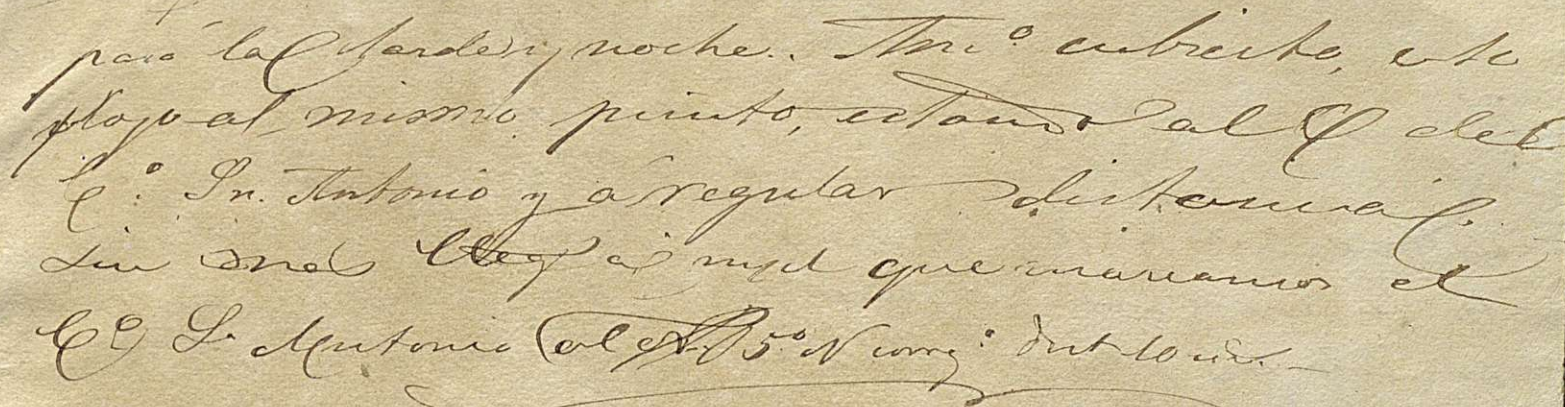 para las tardes y noche. Am.º cubierto, este
flojo al mismo punto, estando al del
C.º Sn. Antonio y a regular distancia.
sin mas llegó a md que marcamos el
Cº Sn Antonio al 5º N corrg.º dist 10